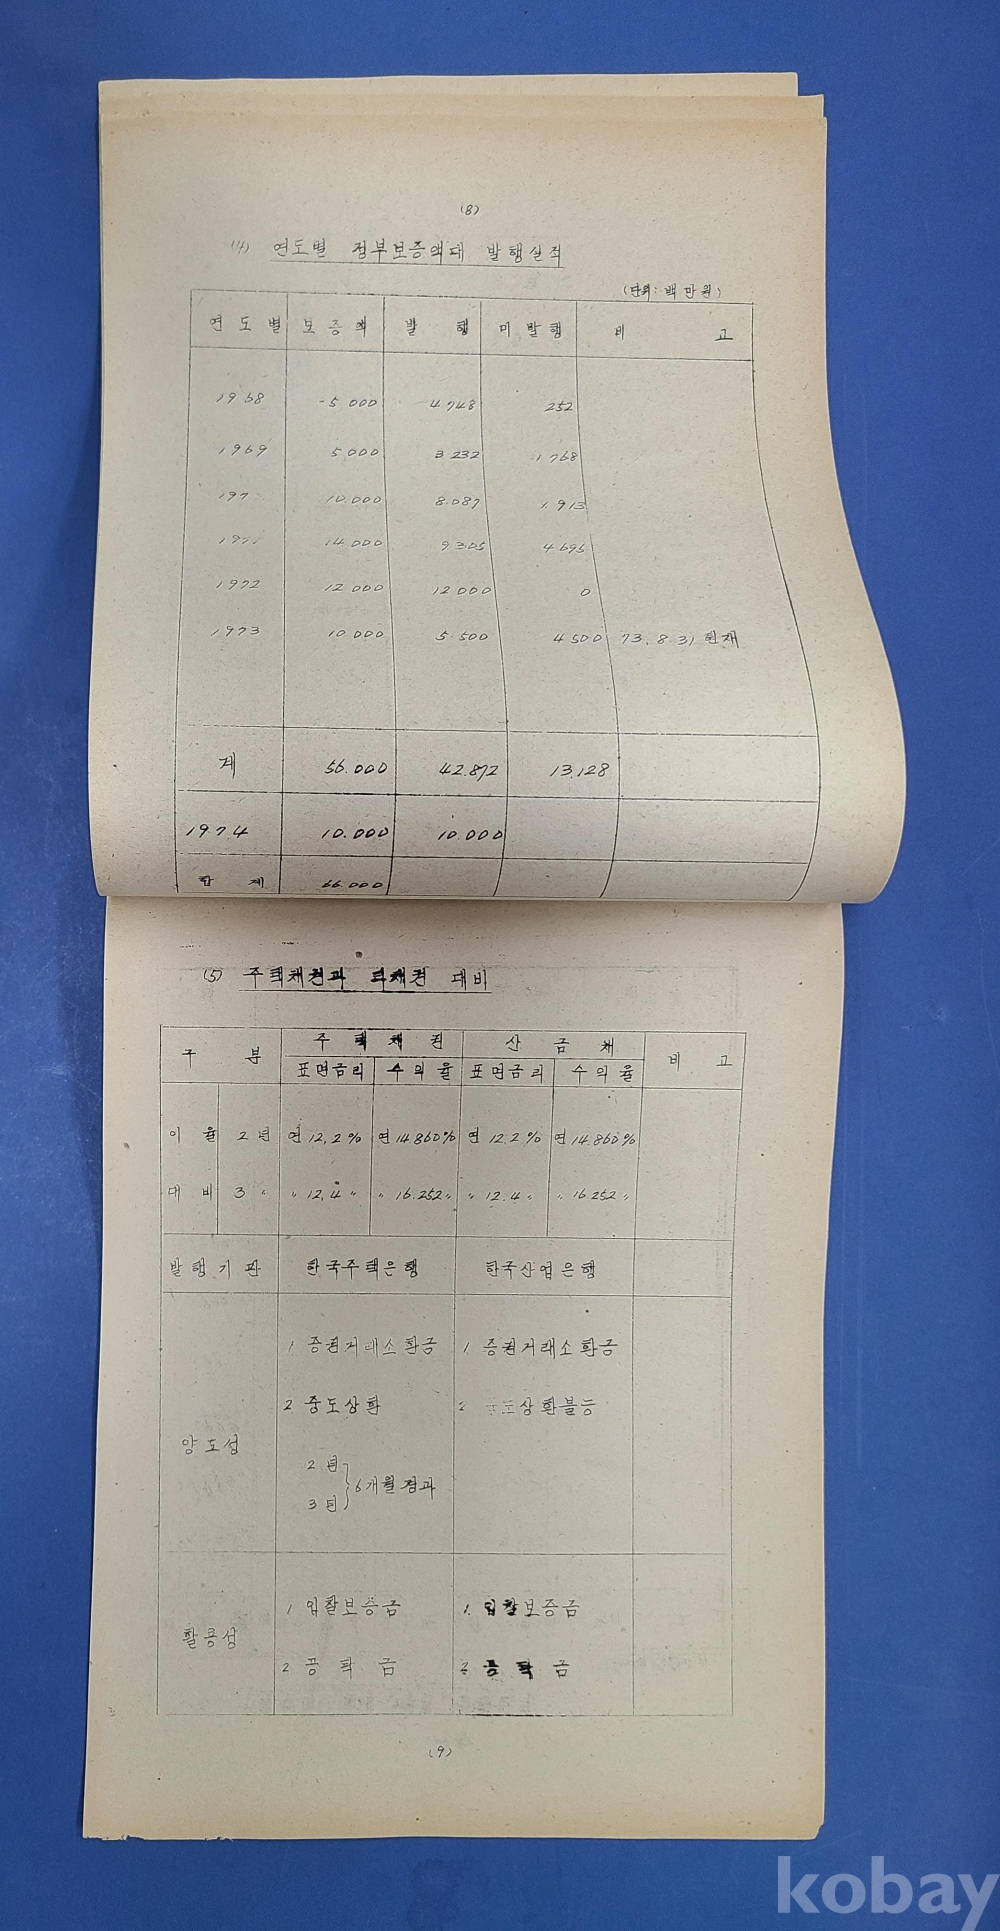 (8)
(4) 연도별 정부보증액대 발행실적
(단위: 백만원)
연도별 보증액 발행 미발행 비고
1968 5 000 4 748 252
1969 5 000 3 232 1 768
197 10.000 8.087 1.913
14.000 9.305 4 695
1972 12 000 12 000 0
1973 10.000 5.500 4 500 73. 8. 31 현재
계 56.000 42.872 13.128
1974 10.000 10.000
합 계 66.000
(5) 주택채권과 타채권 대비
구 분 주택채권 산금채 비고
표면금리 수익율 표면금리 수익율
이율 2년 연12.2% 연14.860% 연12.2% 연14.860%
대비 3 〃 〃 12.4 〃 〃 16.252 〃 〃 12.4 〃 〃 16 252 〃
발행기관 한국주택은행 한국산업은행
1 증권거래소환금 1. 증권거래소환금
2 중도상환 2 중도상환불능
양도성
2년
3년 } 6개월경과
1 입찰보증금 1. 입찰보증금
활용성
2 공탁금 2 공탁금
(9)
kobay